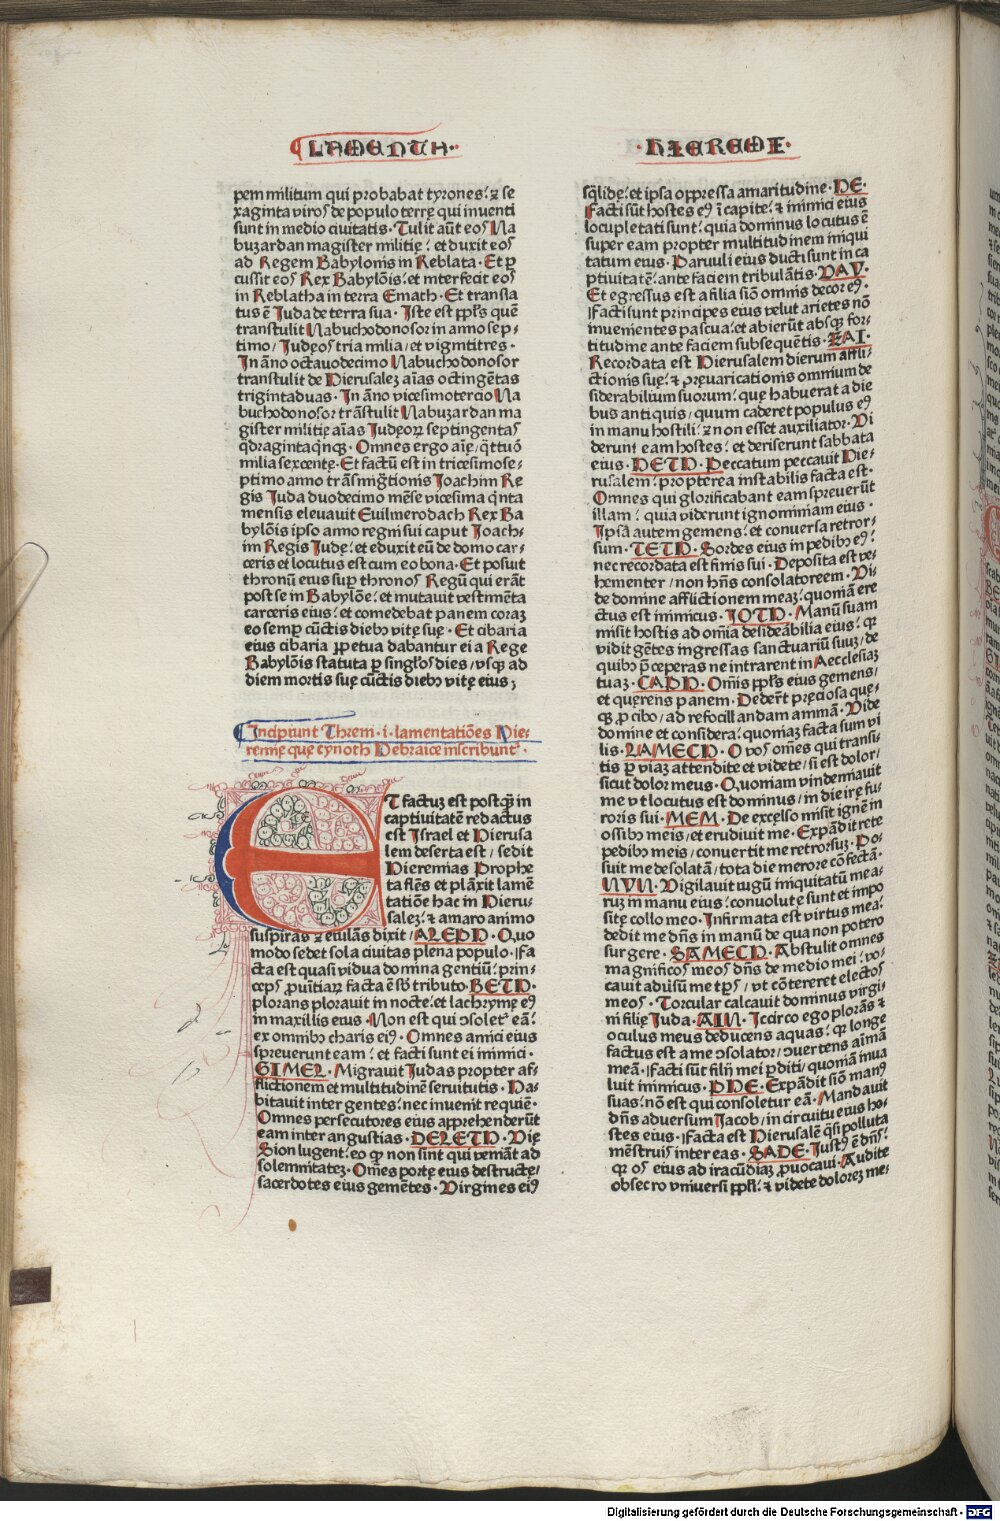 LAMENTA·
·HIEREMI·
pem militum qui probabat tyrones: ⁊ se
xaginta viros de populo terrę qui inuenti
sunt in medio ciuitatis· Tulit aūt eos Na
buzardan magister militię: et duxit eos
ad Regem Babylonis in Reblata· Et p
cussit eos Rex Babylōis: et interfecit eos
in Reblatha in terra Emath· Et transla
tus ē Juda de terra sua· Iste est ppl̄s quē
transtulit Nabuchodonosor in anno sep-
timo/ Judęos tria milia/ et vigintitres·
In āno octauodecimo Nabuchodonosor
transtulit de Hierusaleꝫ aīas octingētas
trigintaduas· In āno vicesimotercio Na
buchodonosor trāstulit Nabuzardan ma
gister militię aīas Judęoꝝ septingentas
qdragintaqnqꝫ· Omnes ergo aīę/ qttuō
milia sexcentę· Et factū est in tricesimose-
ptimo anno trāsmigtionis Joachim Re
gis Juda duodecimo mēse vicesima qnta
mensis eleuauit Euilmerodach Rex Ba
bylōis ipso anno regni sui caput Joach-
im Regis Judę: et eduxit eū de domo car-
ceris et locutus est cum eo bona· Et posuit
thronū eius suꝑ thronos Regū qui erāt
post se in Babylōe: et mutauit vestimēta
carceris eius: et comedebat panem coraꝫ
eo semꝑ cūctis diebꝰ vitę suę· Et cibaria
eius cibaria ꝑpetua dabantur ei a Rege
Babylōis statuta ꝑ singlos dies/ vsqꝫ ad
diem mortis suę cūctis diebꝰ vitę eius;
Incipiunt Threm·i·lamentatiōes Hie-
remię quę cynoth Hebraice inscribuntꝰ·
ET factuꝫ est postqꝫ in
captiuitatē redactus
est Israel et Hierusa
lem deserta est/ sedit
Hieremias Prophe
ta flēs et plāxit lamē
tatiōe hac in Hieru-
saleꝫ: ⁊ amaro animo
suspirās ⁊ eiulās dixit/ ALEPH· Quo
modo sedet sola ciuitas plena populo· Fa
cta est quasi vidua domina gentiū: prin-
ceps ꝓuītiaꝝ facta ē sb tributo· BETH·
plorans plorauit in nocte: et lachrymę eꝰ
in maxillis eius· Non est qui ↄsoletꝰ eā:
ex omnibꝰ charis eiꝰ· Omnes amici eius
spreuerunt eam: et facti sunt ei inimici·
GIMEL· Migrauit Judas propter af-
flictionem et multitudinē seruitutis· Ha-
bitauit inter gentes: nec inuenit requiē·
Omnes persecutores eius apprehenderūt
eam inter angustias· DELETH· Vię
Sion lugent: eo qꝫ non sint qui veniāt ad
solemnitateꝫ· Oēs portę eius destructę/
sacerdotes eius gemētes· Virgines eiꝰ
sqlidę: et ipsa oppressa amaritudine· HE·
Facti sūt hostes eꝰ ī capite: ⁊ inimici eius
locupletati sunt: quia dominus locutus ē
super eam propter multitudinem iniqui
tatum eius· Paruuli eius ducti sunt in ca
ptiuitatē: ante faciem tribulātis· VAV·
Et egressus est a filia siō omnis decor eꝰ·
Facti sunt principes eius velut arietes nō
inuenientes pascua: et abierūt absqꝫ for-
titudine ante faciem subsequētis· ZAI·
Recordata est Hierusalem dierum affli-
ctionis suę: ⁊ pręuaricationis omnium de
siderabilium suorum: quę habuerat a die
bus antiquis/ quum caderet populus eꝰ
in manu hostili: ⁊ non esset auxiliator· Vi
derunt eam hostes: et deriserunt sabbata
eius· HETH· Peccatum peccauit Hie-
rusalem: propterea instabilis facta est·
Omnes qui glorificabant eam spreuerūt
illam: quia viderunt ignominiam eius·
Ipsā autem gemens: et conuersa retror-
sum· TETH· Sordes eius in pedibꝰ eꝰ:
nec recordata est finis sui· Deposita est ve-
hementer/ non hn̄s consolatoreem· Vi-
de domine afflictionem meaꝫ: quoniā ere
ctus est inimicus· JOTH· Manū suam
misit hostis ad omīa desideābilia eius: qꝫ
vidit gētes ingressas sanctuariū suuꝫ/ de
quibꝰ pceperas ne intrarent in Aecclesiaꝫ
tuaꝫ· CAPH· Omīs ppl̄s eius gemens/
et quęrens panem· Dederūt pręciosa quę-
qꝫ ꝓ cibo/ ad refocillandam animā· Vide
domine et considera: quoniaꝫ facta sum vi
lis· LAMECH· O vos omēs qui transi-
tis ꝑ viaꝫ attendite et videte/ si est dolor/
sicut dolor meus· Quoniam vindemiauit
me vt locutus est dominus/ in die irę fu-
roris sui· MEM· De excelso misit ignē in
ossibꝰ meis/ et erudiuit me· Expādit rete
pedibꝰ meis/ conuertit me retrorsuꝫ· Po-
suit me desolatā/ tota die merore cōfectā·
NVN· Vigilauit iugū iniquitatū mea-
ruꝫ in manu eius: conuolutę sunt et impo
sitę collo meo· Infirmata est virtus mea:
dedit me dn̄s in manū de qua non potero
surgere· SAMECH· Abstulit omnes
magnificos meos dn̄s de medio mei: vo-
cauit aduūsū me tps/ vt cōtereret electos
meos· Torcular calcauit dominus virgi-
ni filię Juda· AIN· Iccirco ego plorās ⁊
oculus meus deducens aquas: qꝫ longe
factus est a me ↄsolator/ ↄuertens aīmā
meā· Facti sūt filij mei ꝑditi/ quoniā inua
luit inimicus· PHE· Expādit siō manꝰ
suas: nō est qui consoletur eā· Mandauit
dn̄s aduersum Jacob/ in circuitu eius ho-
stes eius· Facta est Hierusalē qsi polluta
mēstruis inter eas· SADE· Justꝰ ē dn̄s:
qꝫ os eius ad iracūdiaꝫ ꝓuocaui· Audite
obsecro vniuersi ppl̄i: ⁊ videte doloreꝫ me-
Digitalisierung gefördert durch die Deutsche Forschungsgemeinschaft - DFG